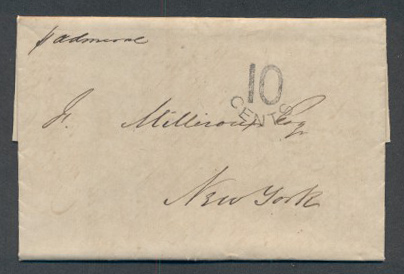 p admiral
10
CENTS
Fr. Milliroux Esq
New York